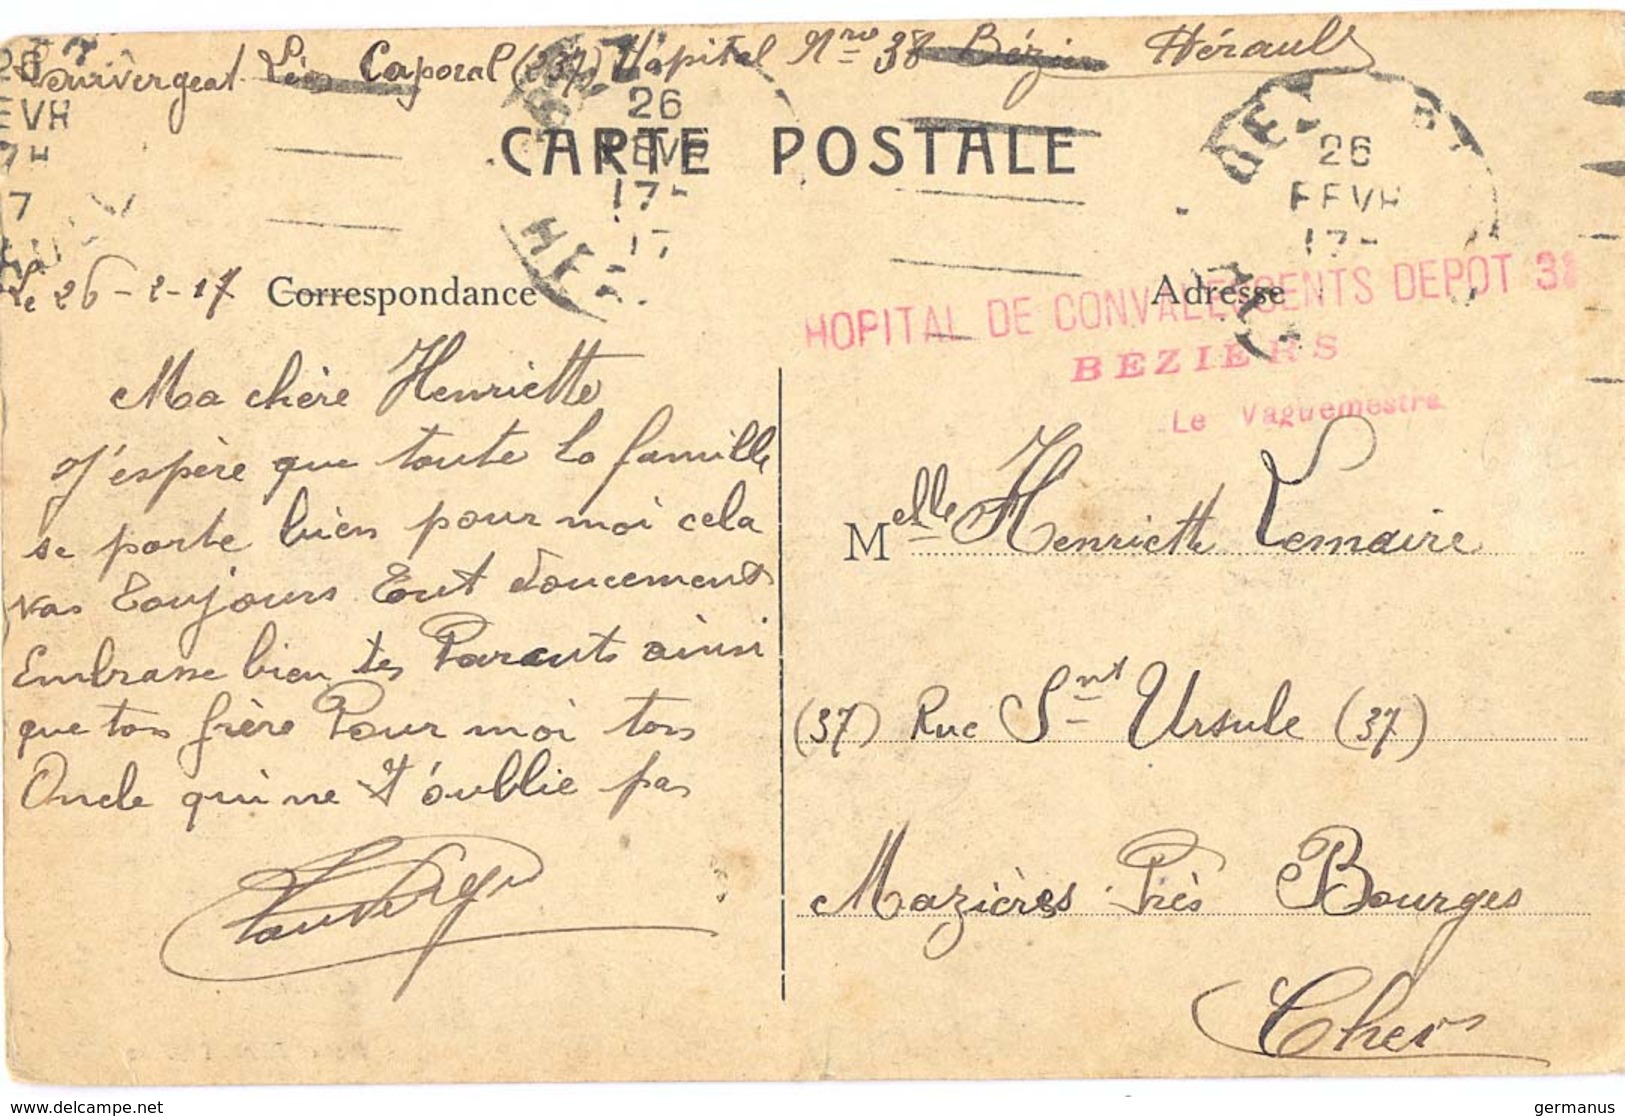 Léon Caporal (37) Hôpital Nro 38 Béziers Hérault
CARTE POSTALE
26
FEVR
17-
17
HE
26
FEVR
17-
26
EVR
7
Le 26-2-17
Correspondance
Adresse
HOPITAL DE CONVALESCENTS DEPOT 38
BEZIERS
Le Vaguemestre
Ma chère Henriette
J'espère que toute la famille
se porte bien pour moi cela
vas toujours tout doucement
Embrasse bien tes Parents ainsi
que ton frère Pour moi ton
Oncle qui ne t'oublie pas
Melle Henriette Lemaire
(37) Rue Snt Ursule (37)
Mazières Près Bourges
Cher
germanus